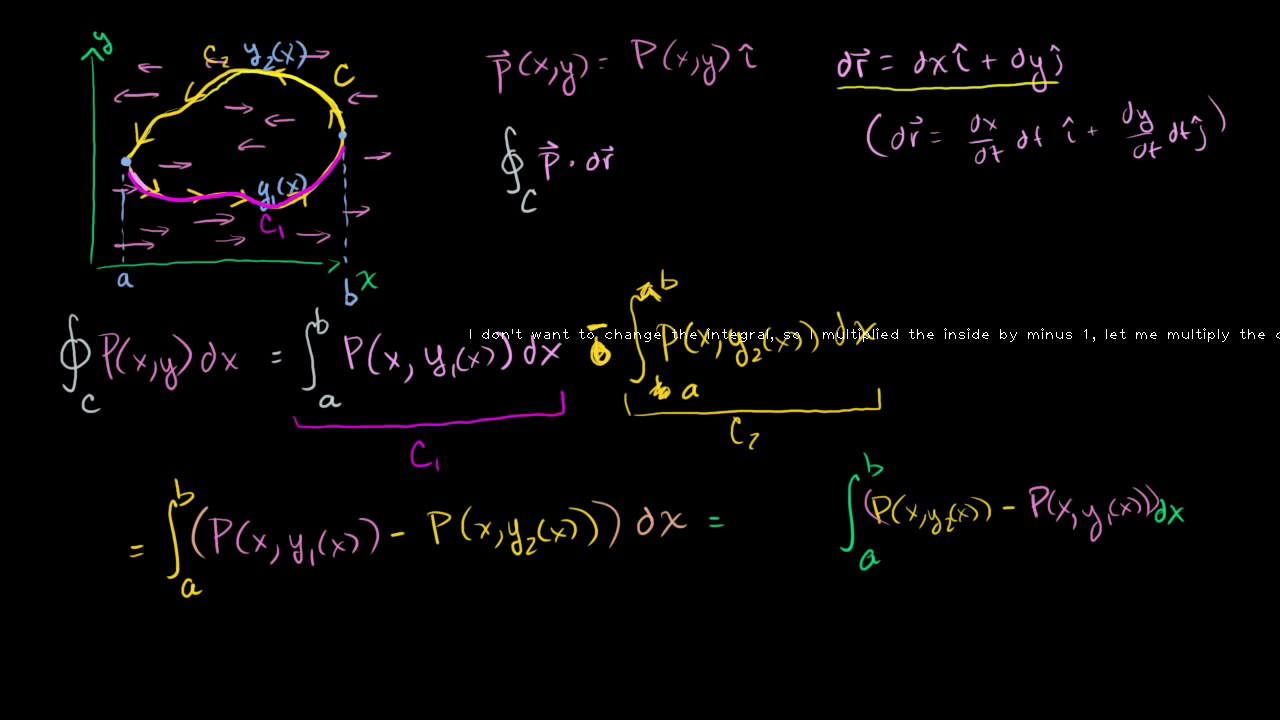 y
C₂ y₂(x)
C
y₁(x)
C₁
a
b
x
P⃗(x,y) = P(x,y) î
dr⃗ = dx î + dy ĵ
(dr⃗ = dx/dt dt î + dy/dt dt ĵ)
∮_C P⃗ · dr⃗
∮_C P(x,y) dx = ∫_a^b P(x, y₁(x)) dx − ∫_a^b P(x, y₂(x)) dx
I don't want to change the integral, so I multiplied the inside by minus 1, let me multiply the
C₁
C₂
= ∫_a^b (P(x, y₁(x)) − P(x, y₂(x))) dx =
∫_a^b (P(x, y₂(x)) − P(x, y₁(x))) dx